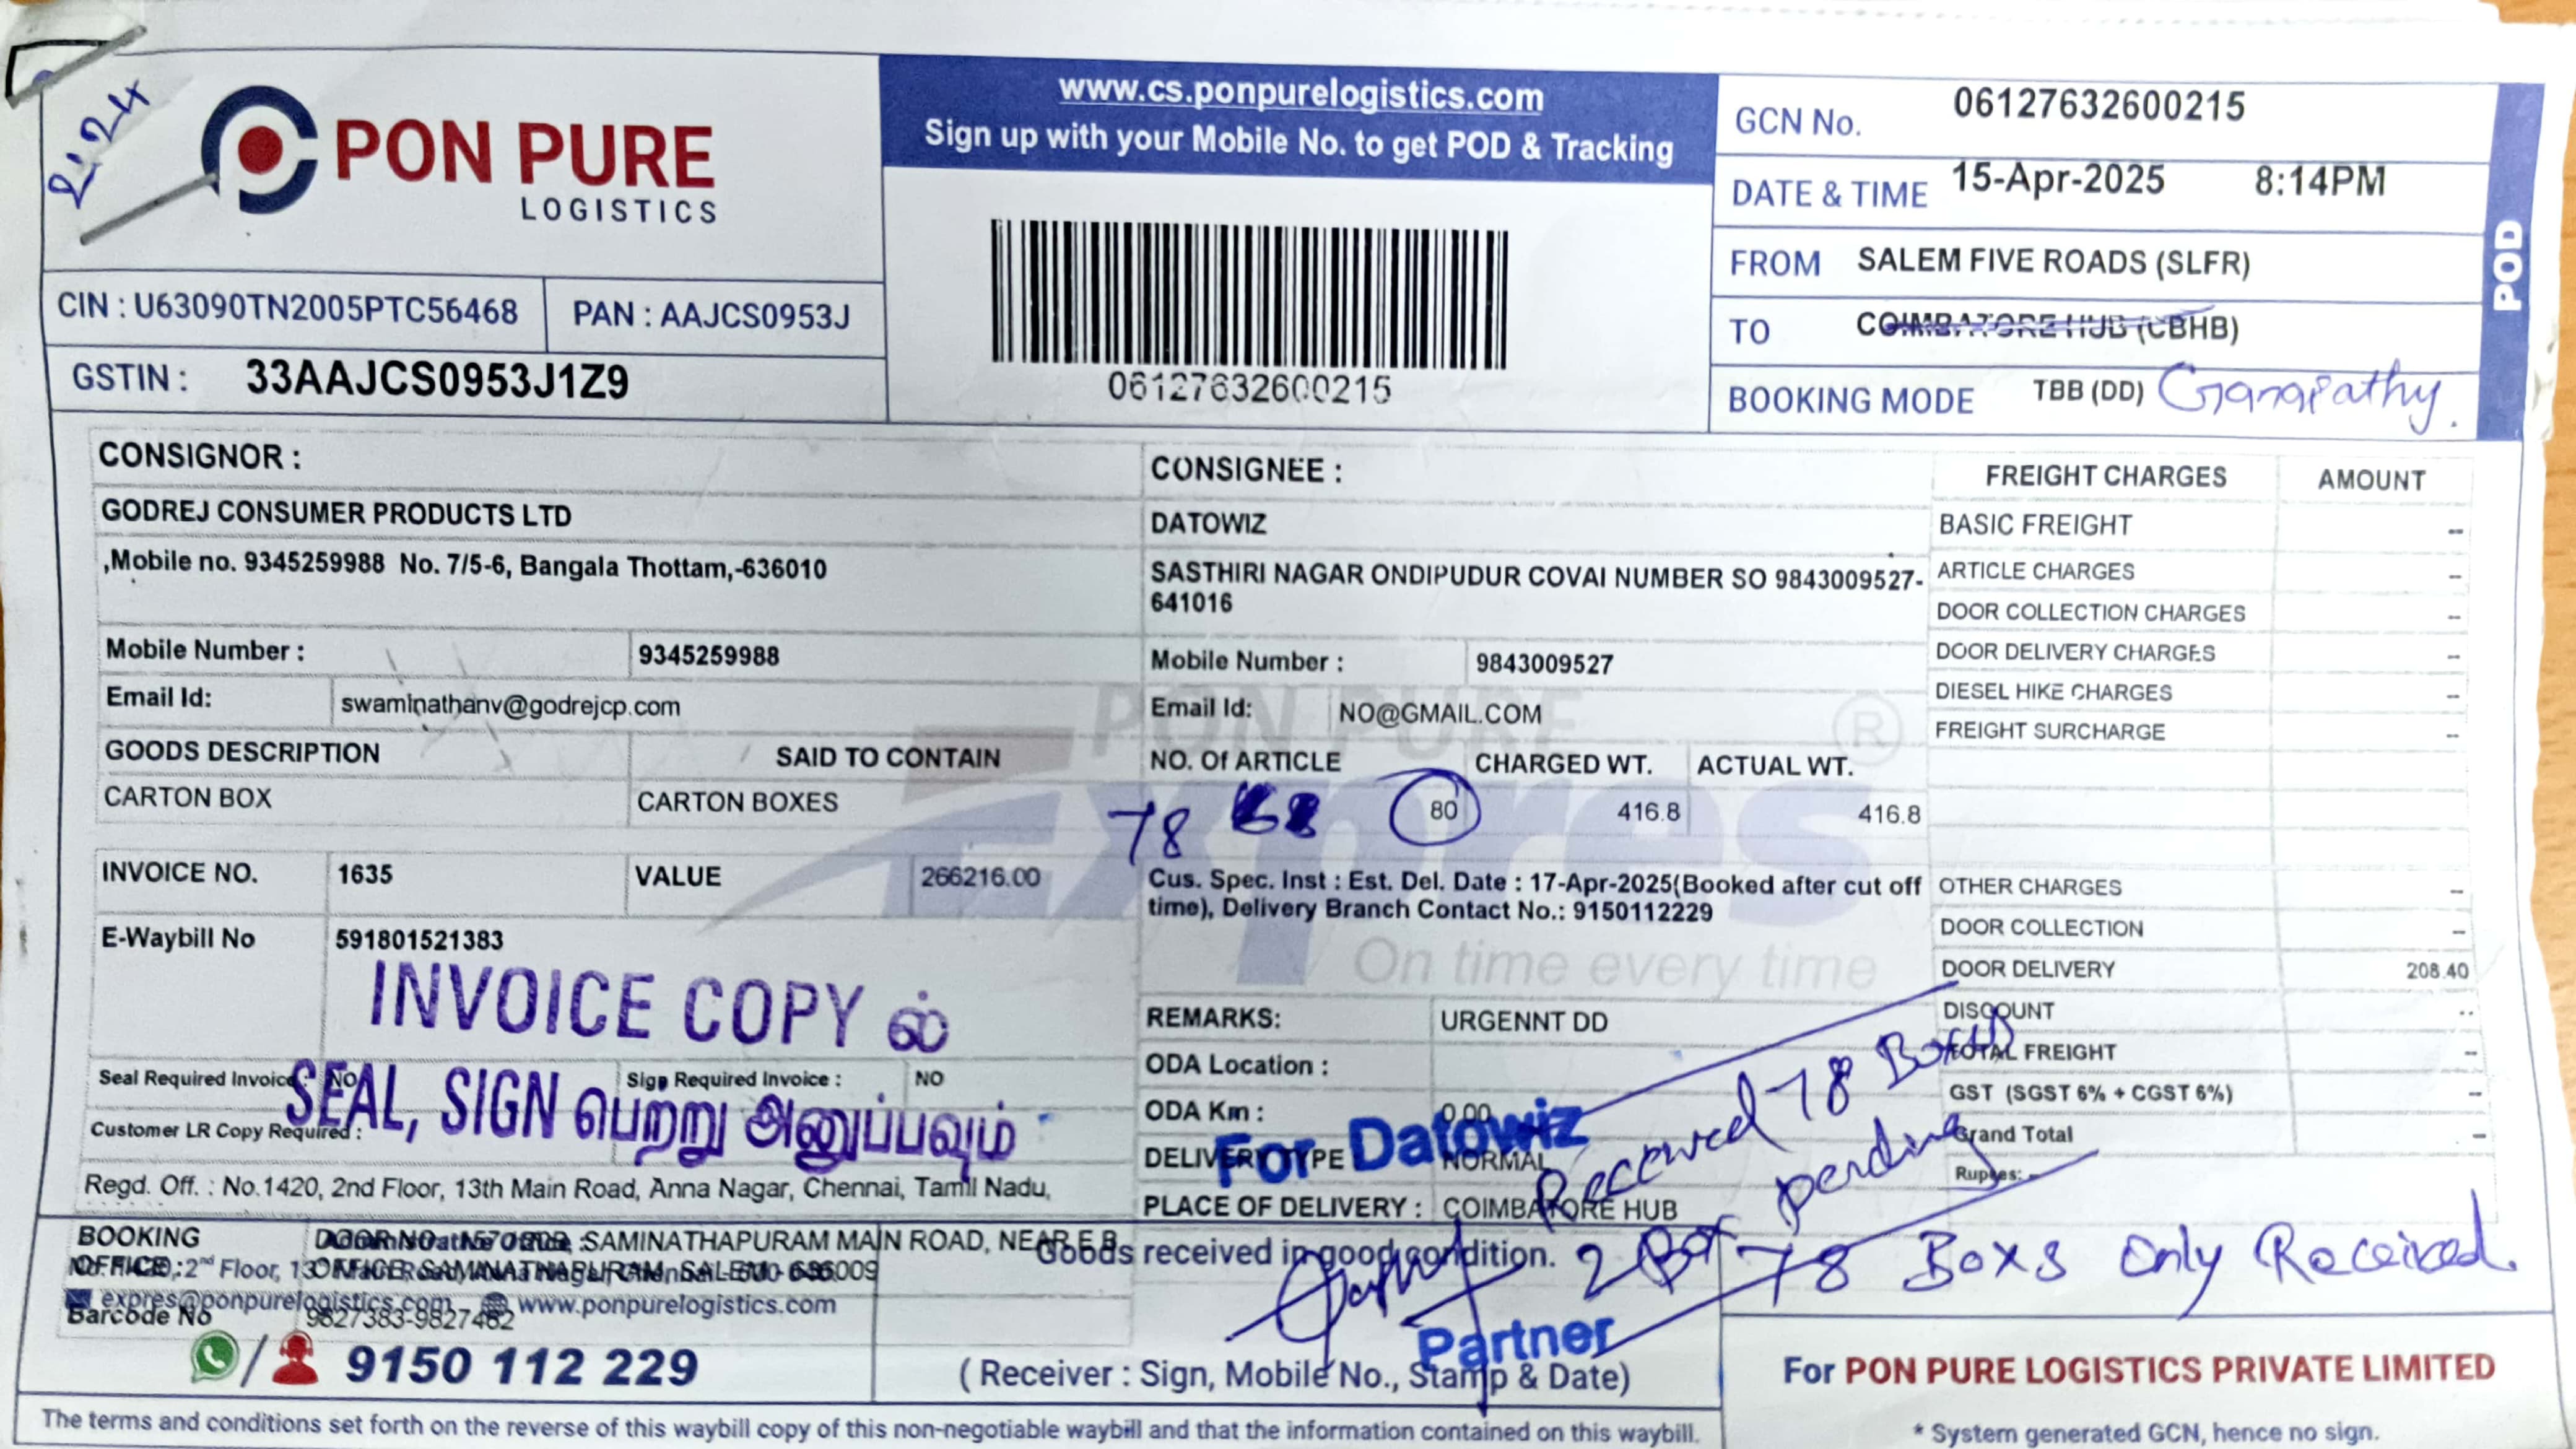 2124
PON PURE
LOGISTICS
www.cs.ponpurelogistics.com
Sign up with your Mobile No. to get POD & Tracking
06127632600215
GCN No. 06127632600215
DATE & TIME 15-Apr-2025 8:14PM
FROM SALEM FIVE ROADS (SLFR)
TO COIMBATORE HUB (CBHB)
BOOKING MODE TBB (DD) Ganapathy.
POD
CIN : U63090TN2005PTC56468 PAN : AAJCS0953J
GSTIN : 33AAJCS0953J1Z9
CONSIGNOR :
GODREJ CONSUMER PRODUCTS LTD
,Mobile no. 9345259988 No. 7/5-6, Bangala Thottam,-636010
Mobile Number : 9345259988
Email Id: swaminathanv@godrejcp.com
GOODS DESCRIPTION SAID TO CONTAIN
CARTON BOX CARTON BOXES
INVOICE NO. 1635 VALUE 266216.00
E-Waybill No 591801521383
INVOICE COPY ல்
SEAL, SIGN பெற்று அனுப்பவும்
Seal Required Invoice : NO Sign Required Invoice : NO
Customer LR Copy Required :
Regd. Off. : No.1420, 2nd Floor, 13th Main Road, Anna Nagar, Chennai, Tamil Nadu,
CONSIGNEE :
DATOWIZ
SASTHIRI NAGAR ONDIPUDUR COVAI NUMBER SO 9843009527-
641016
Mobile Number : 9843009527
Email Id: NO@GMAIL.COM
NO. Of ARTICLE CHARGED WT. ACTUAL WT.
78 80 416.8 416.8
PON PURE
Expres ®
On time every time
Cus. Spec. Inst : Est. Del. Date : 17-Apr-2025(Booked after cut off
time), Delivery Branch Contact No.: 9150112229
REMARKS: URGENNT DD
ODA Location :
ODA Km : 0.00
DELIVERY TYPE NORMAL
PLACE OF DELIVERY : COIMBATORE HUB
FREIGHT CHARGES AMOUNT
BASIC FREIGHT --
ARTICLE CHARGES --
DOOR COLLECTION CHARGES --
DOOR DELIVERY CHARGES --
DIESEL HIKE CHARGES --
FREIGHT SURCHARGE --
OTHER CHARGES --
DOOR COLLECTION --
DOOR DELIVERY 208.40
DISCOUNT --
TOTAL FREIGHT --
GST (SGST 6% + CGST 6%) --
Grand Total --
Rupees: --
For Datowiz
Received 78 Boxes
2 Box pending
78 Boxs Only Received.
Partner
BOOKING OFFICE : SAMINATHAPURAM MAIN ROAD, NEAR E.B
OFFICE, SAMINATHAPURAM, SALEM - 636009
expres@ponpurelogistics.com www.ponpurelogistics.com
Barcode No 9827383-9827462
9150 112 229
Goods received in good condition.
( Receiver : Sign, Mobile No., Stamp & Date)
For PON PURE LOGISTICS PRIVATE LIMITED
The terms and conditions set forth on the reverse of this waybill copy of this non-negotiable waybill and that the information contained on this waybill.
* System generated GCN, hence no sign.